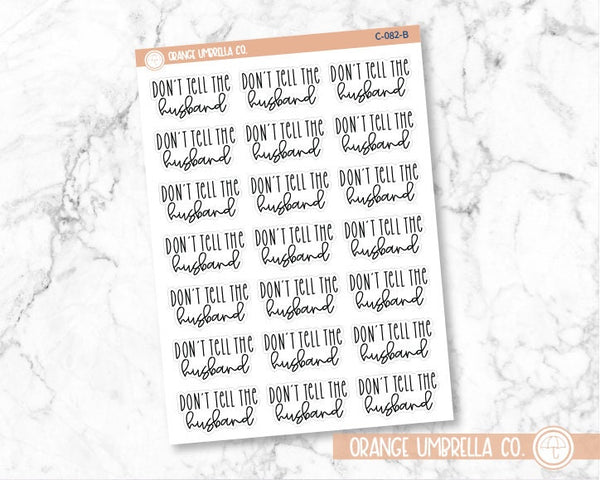 C-082-B
ORANGE UMBRELLA CO.
DON'T TELL THE DON'T TELL THE DON'T TELL THE
husband husband husband
DON'T TELL THE DON'T TELL THE DON'T TELL THE
husband husband husband
DON'T TELL THE DON'T TELL THE DON'T TELL THE
husband husband husband
DON'T TELL THE DON'T TELL THE DON'T TELL THE
husband husband husband
DON'T TELL THE DON'T TELL THE DON'T TELL THE
husband husband husband
DON'T TELL THE DON'T TELL THE DON'T TELL THE
husband husband husband
DON'T TELL THE DON'T TELL THE DON'T TELL THE
husband husband husband
ORANGE UMBRELLA CO.